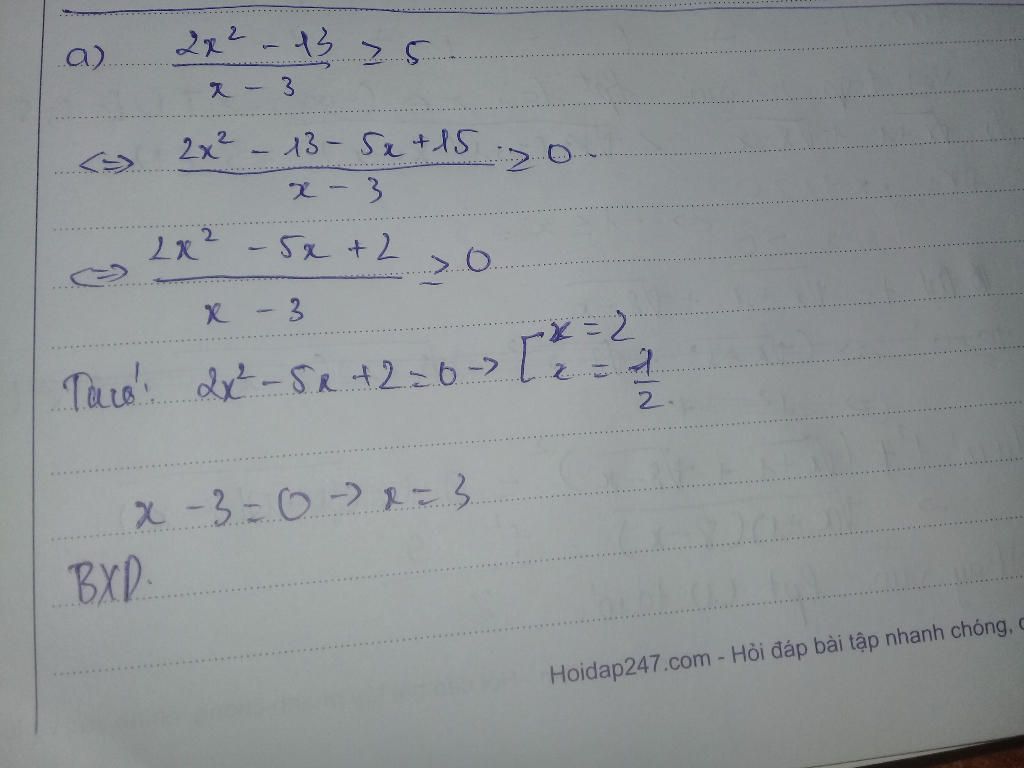 a) (2x² - 13)/(x - 3) ≥ 5
<=> (2x² - 13 - 5x + 15)/(x - 3) ≥ 0
<=> (2x² - 5x + 2)/(x - 3) ≥ 0
Ta có: 2x² - 5x + 2 = 0 → [ x = 2
x = 1/2
x - 3 = 0 → x = 3
BXD
Hoidap247.com - Hỏi đáp bài tập nhanh chóng,